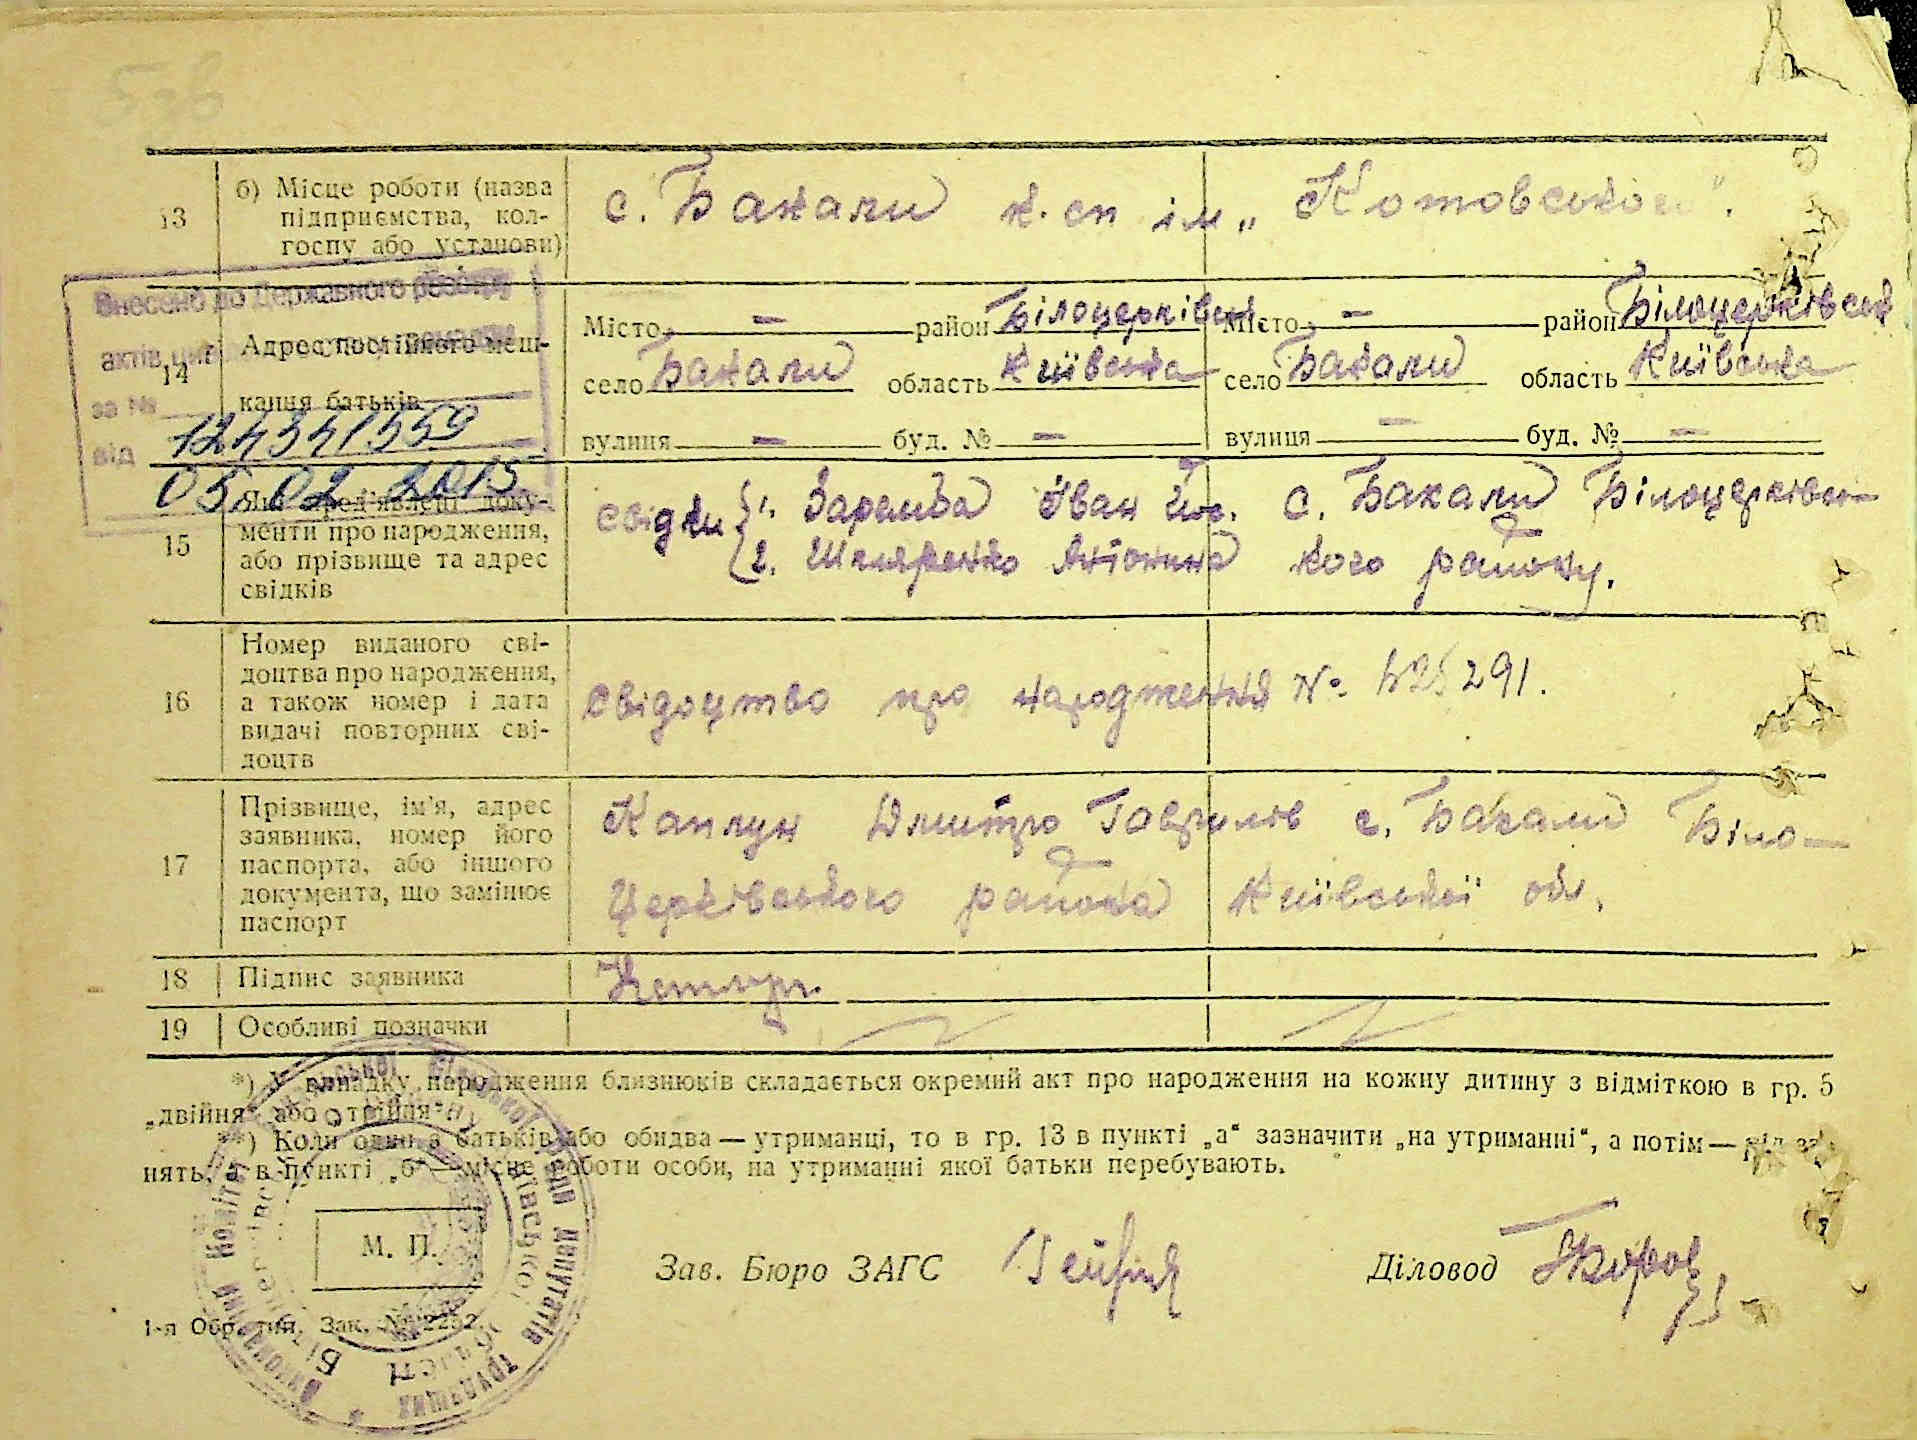 13
б) Місце роботи (назва
підприємства, кол-
госпу або установи)
с. Бакали к. сп ім „Котовського".
Внесено до Державного реєстру
актів цив
за №
124341559
від
05.02.2015
14
Адрес постійного меш-
кання батьків
Місто — район Білоцерківськ
село Бакали область Київська
вулиця — буд. № —
Місто — район Білоцерківськ
село Бакали область Київська
вулиця — буд. № —
15
Які пред'явлені доку-
менти про народження,
або прізвище та адрес
свідків
свідки 1. Заремба Іван с. Бакали Білоцерківсь-
2. Шкляренко Антонина кого району.
16
Номер виданого сві-
доцтва про народження,
а також номер і дата
видачі повторних сві-
доцтв
свідоцтво про народження №. 291.
17
Прізвище, ім'я, адрес
заявника, номер його
паспорта, або іншого
документа, що замінює
паспорт
Каплун Дмитро Гаврилов с. Бакали Біло—
Церківського района Київської обл.
18
Підпис заявника
Каплун
19
Особливі позначки
*) У випадку народження близнюків складається окремий акт про народження на кожну дитину з відміткою в гр. 5
„двійня“ або „трійня“
**) Коли один з батьків або обидва — утриманці, то в гр. 13 в пункті „а“ зазначити „на утриманні“, а потім — рід за-
нять, а в пункті „б“ — місце роботи особи, на утриманні якої батьки перебувають.
М. П.
Зав. Бюро ЗАГС
Діловод
1-я Обр. тип. Зак. № 2252.